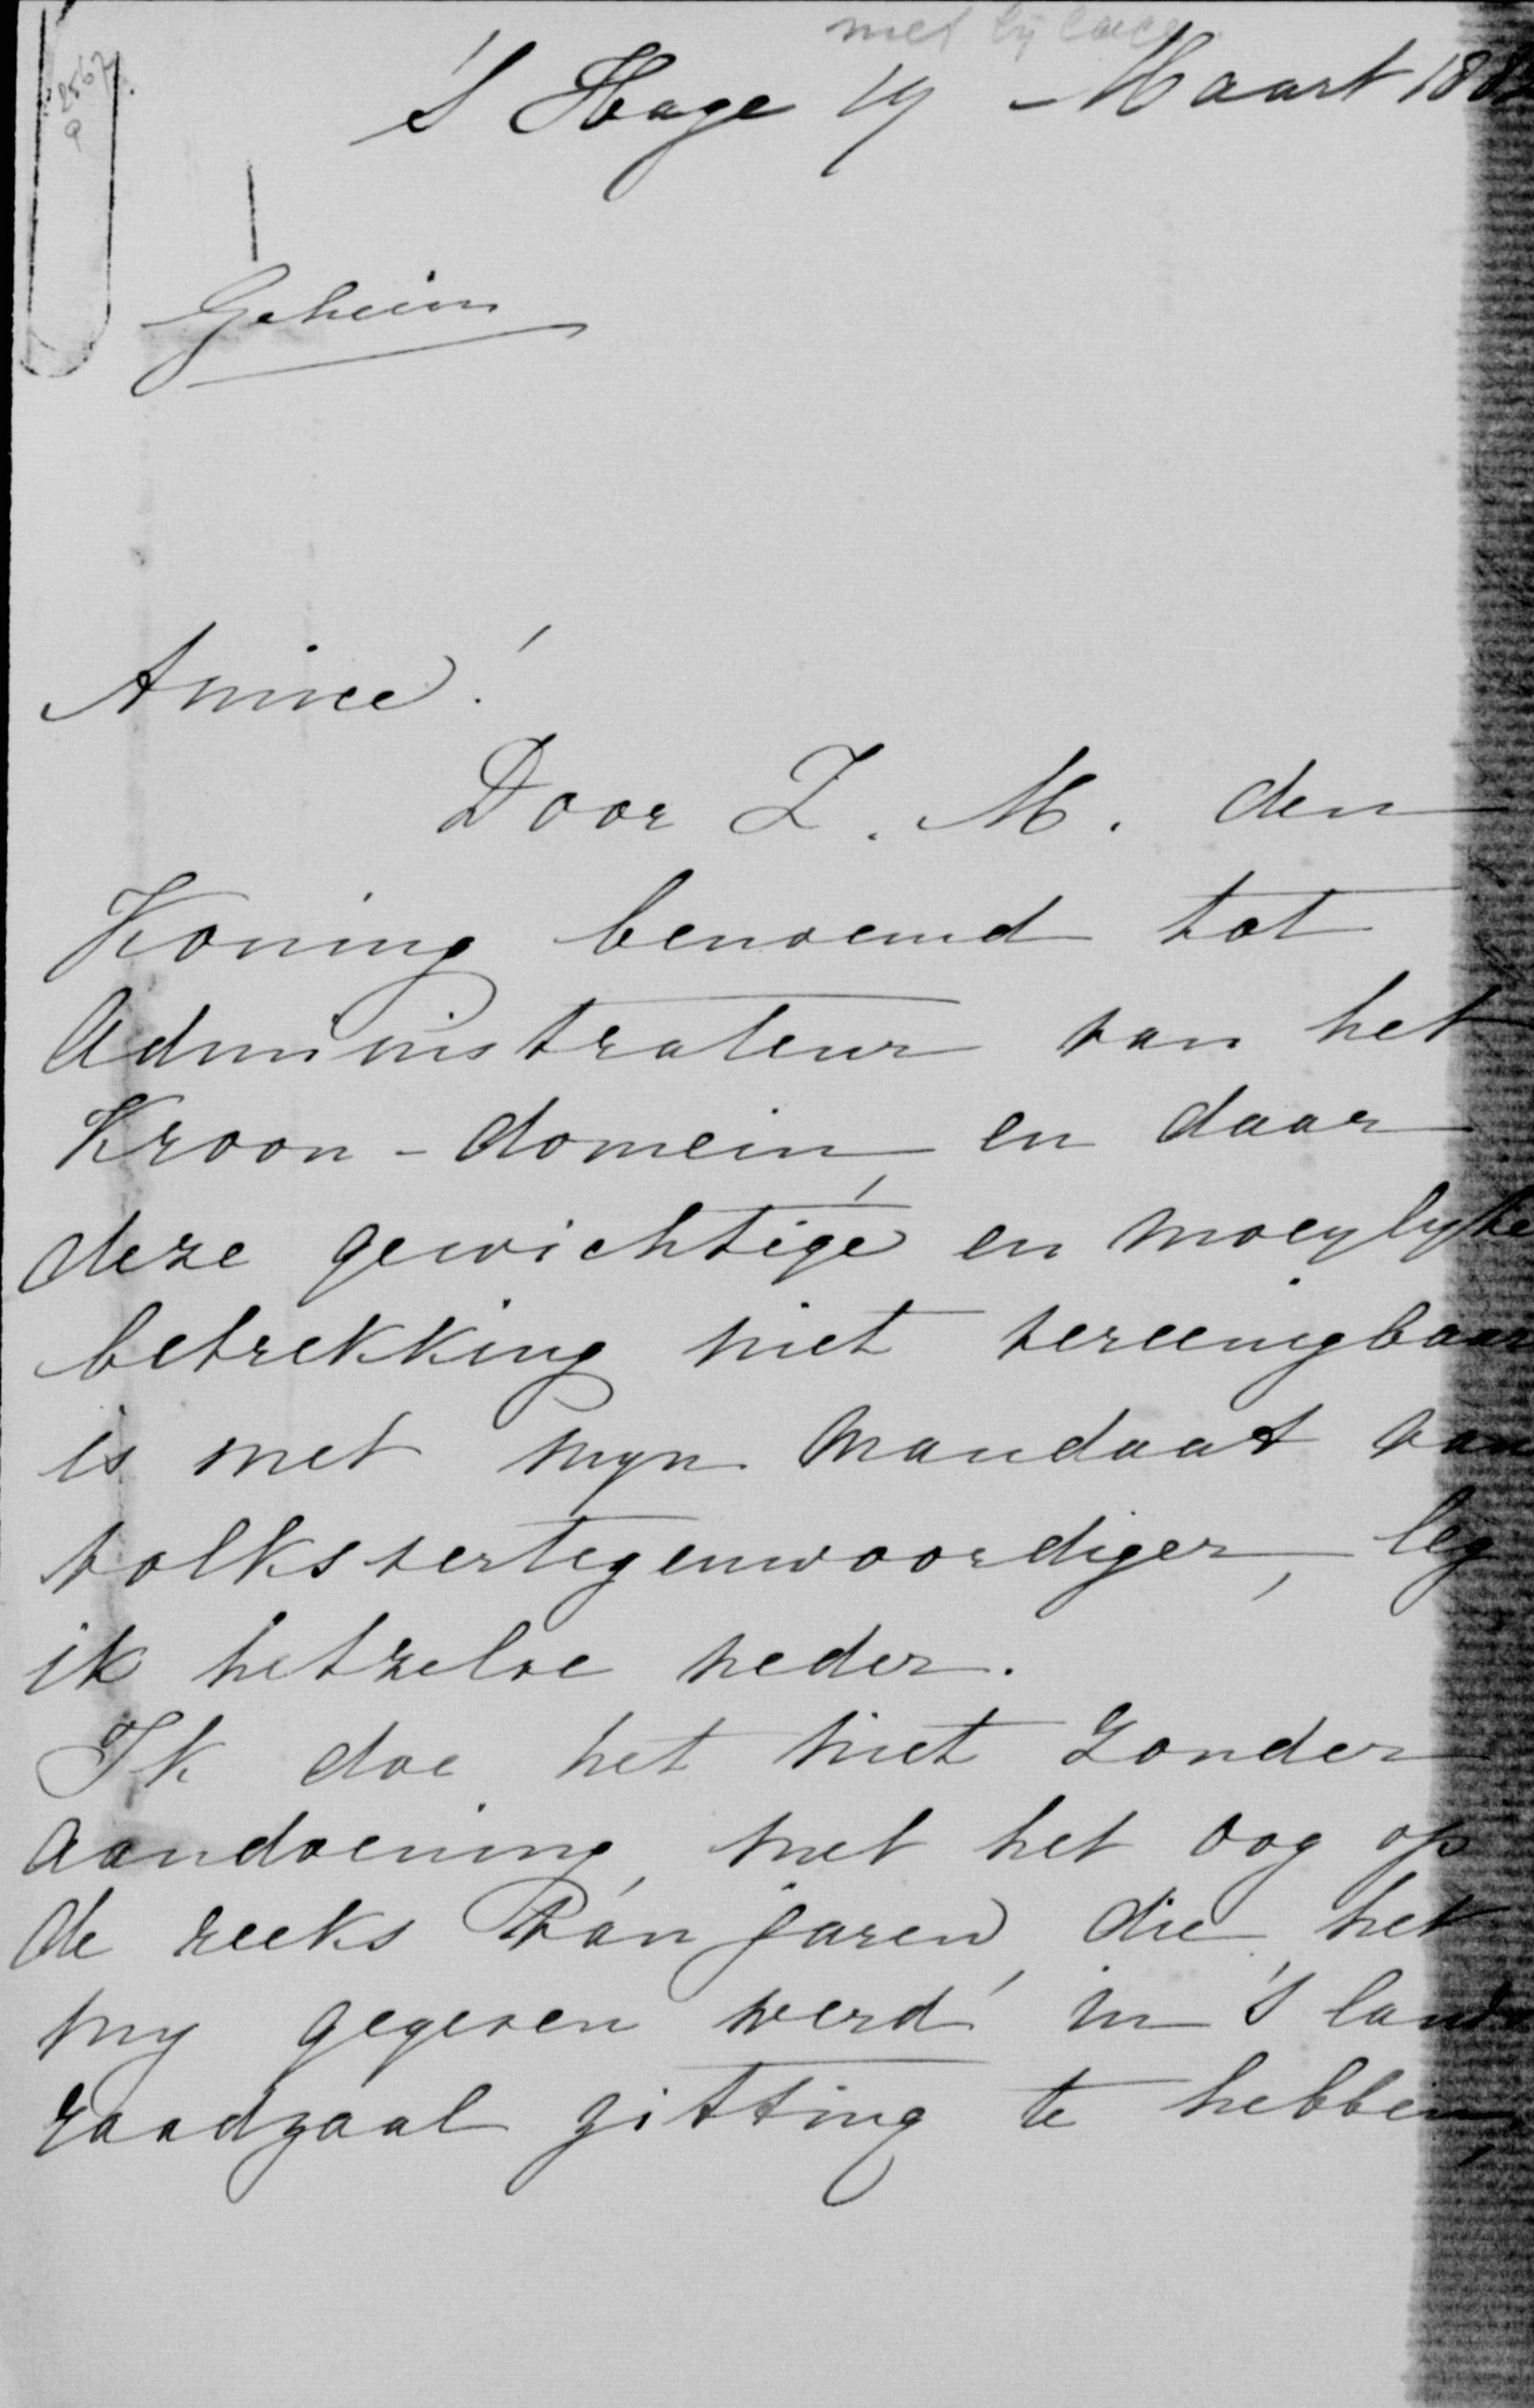 met bijlage
2567
a
's Hage 19 Maart 188
Geheim
Amice!
Door Z. M. den
Koning benoemd tot
Administrateur van het
Kroon-domein, en daar
deze gewichtige en moeylyke
betrekking niet vereenigbaar
is met myn mandaat van
volksvertegenwoordiger, leg
ik hetzelve neder.
Ik doe het niet zonder
aandoening, met het oog op
de reeks van jaren, die het
my gegeven werd in 's lands
raadzaal zitting te hebben,